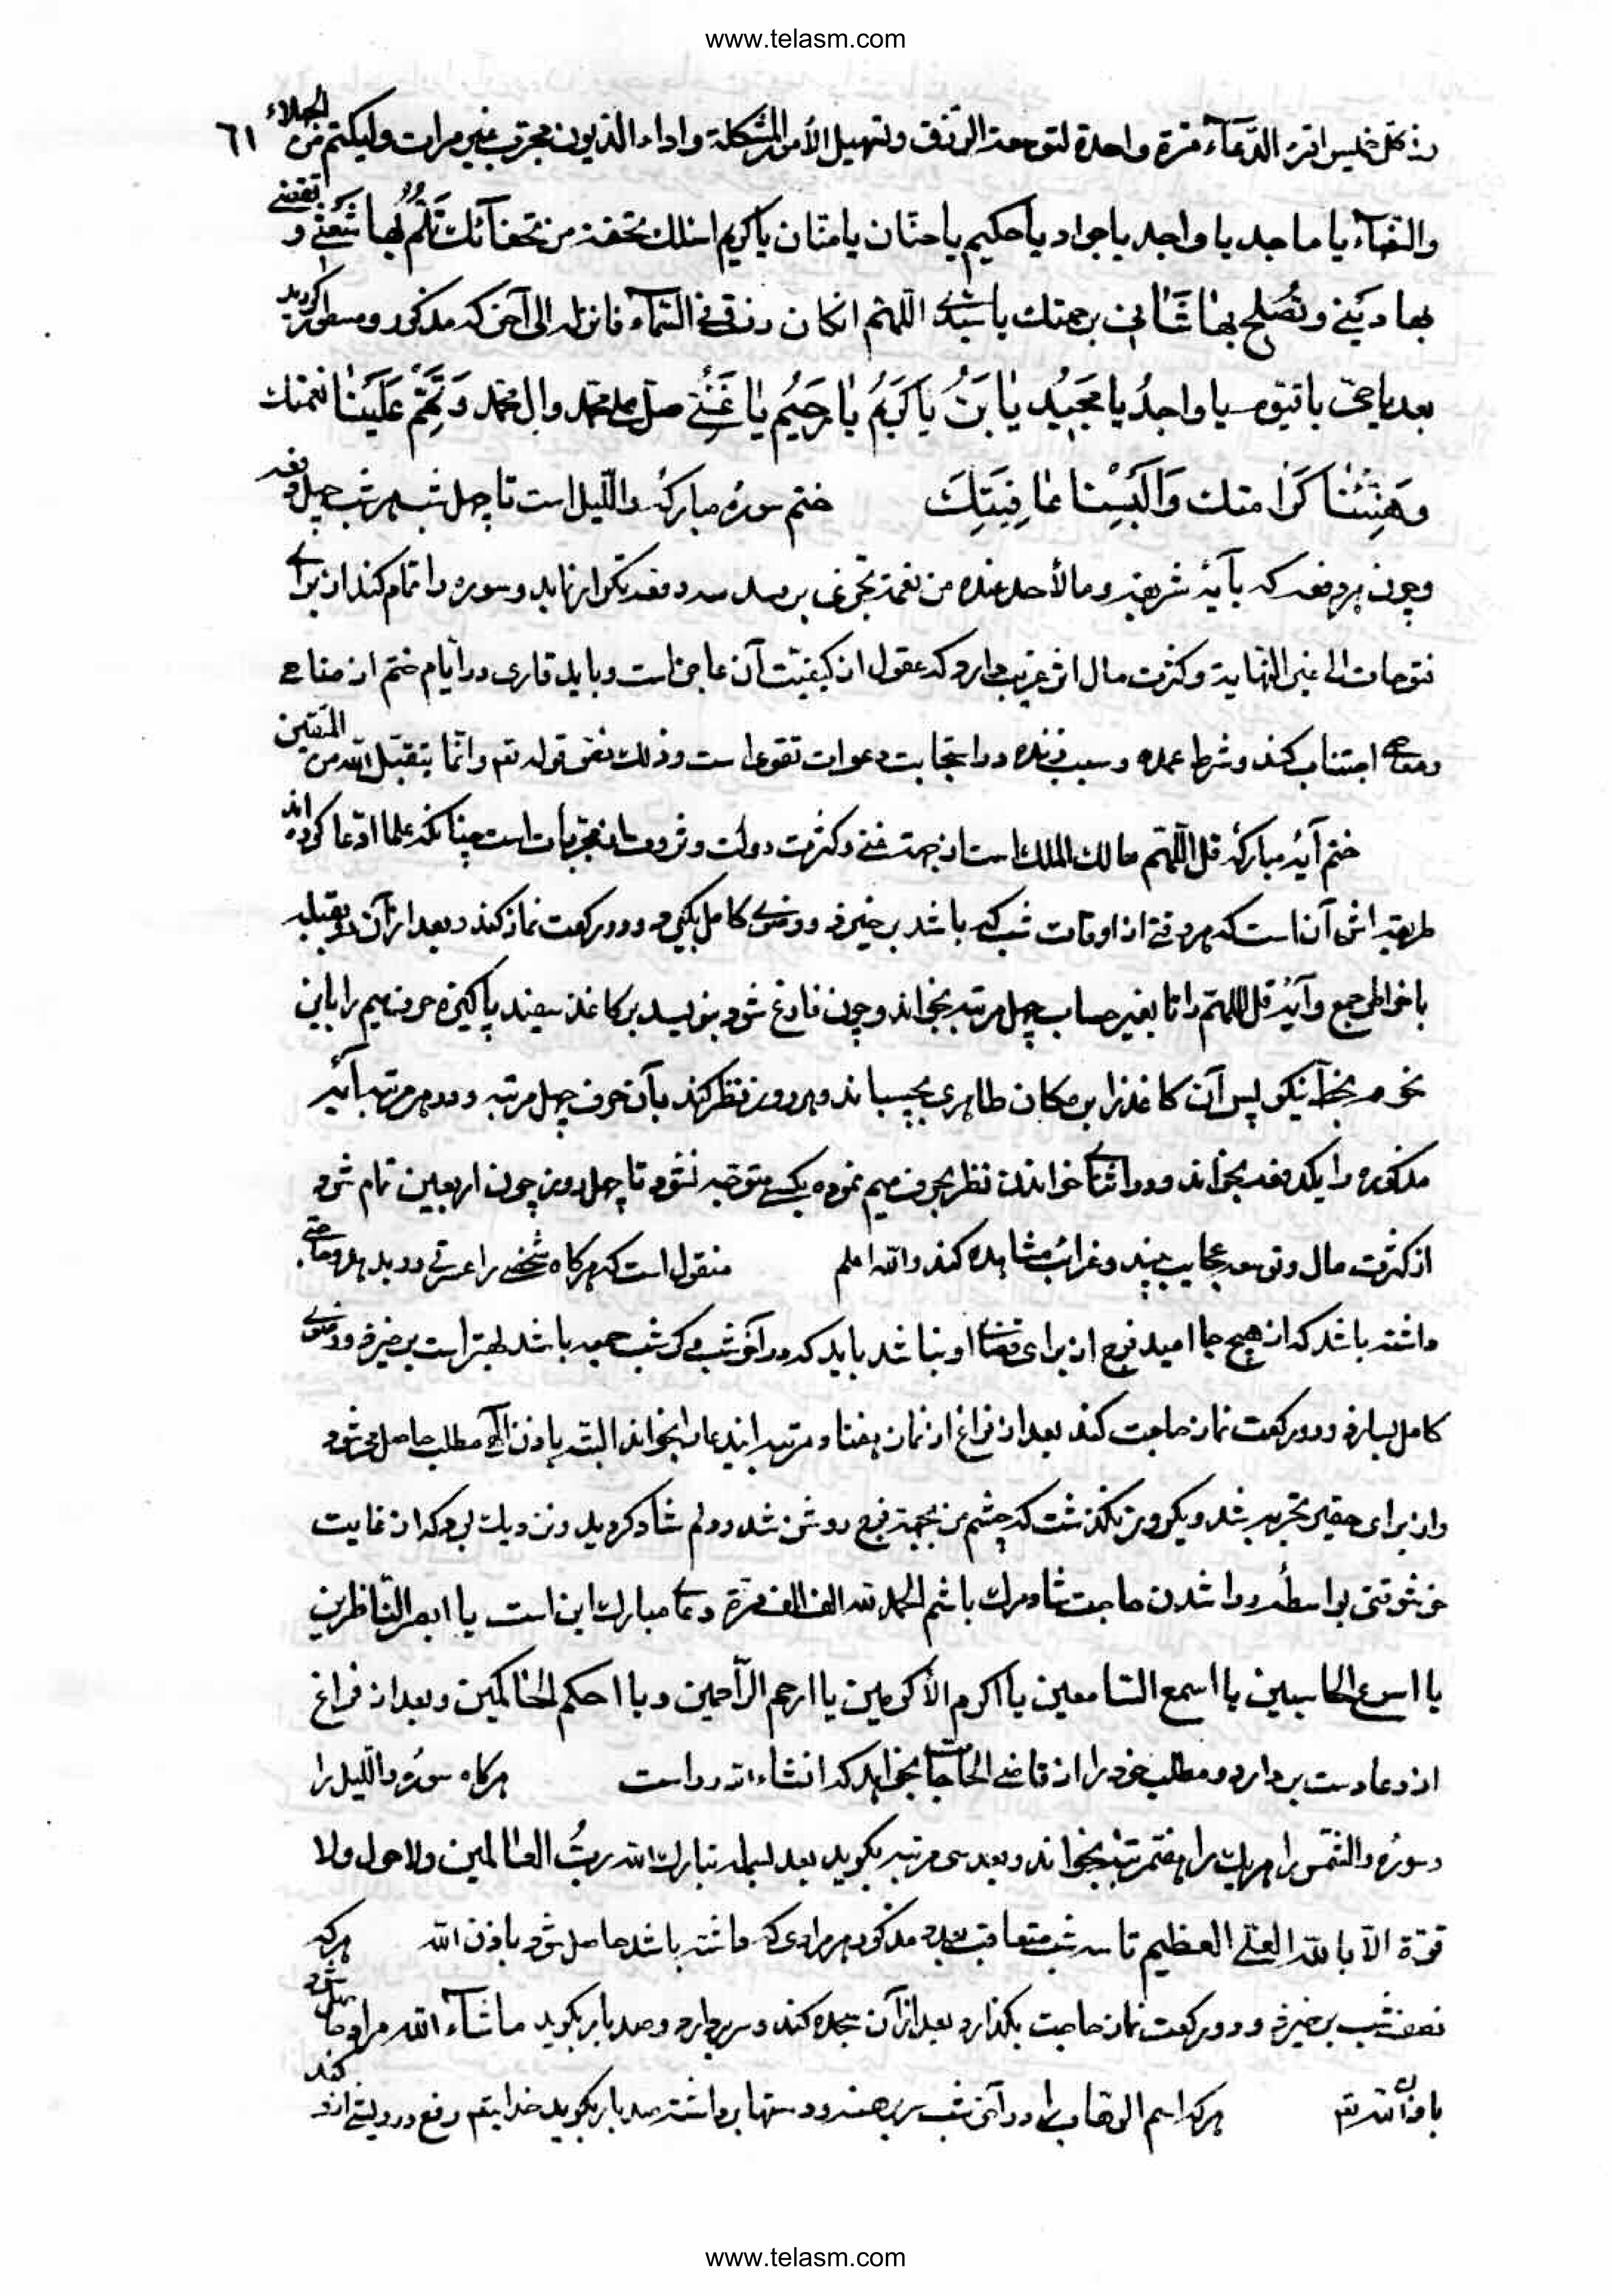 www.telasm.com
٦١
فی کل خمیس اقرء الدّعآء مرّة واحدة لتوسعة الرّزق ولتسهیل الأمور المشکلة واداء الدّیون مجرّب غیر مرات ولیکتم من الجهلاء
والسّفهاء یا ماجد یا واجد یا جواد یا حکیم یا حنّان یا منّان یا کریم اسئلک تحفة من تحفاتک تَلُمُّ بها شَعَثی و تقضی
بها دَینی وتُصلح بهٰا شَٰانی برحمتک یا سیّدی اللّهمّ ان کان رزقی فی السّمآء فانزله الی آخر که مذکور و مسطور کردید
بعد یا حیّ یا قیّوم یا واجدُ یا مَجیدُ یٰا بَرُّ یا کَریمُ یٰا رَحیمُ یٰا غَنیُّ صلّ علی محمّد وال محمّد وَتَمِّم عَلَینٰا نعمتک
وَهَنِّئنٰا کَرٰامتک وَاَلبِسنٰا عٰافِیَتِکَ ختم سورۀ مبارکۀ واللّیل است تا چهل شب هر شب چهل دفعه
وچون هر دفعه که بآیۀ شریفه وما لأحد عنده من نعمة تجزی برسد سه دفعه تکرار نماید و سوره را تمام کند از برای
فتوحات الی غیر النّهایة وکثرت مال اثر غریب دارد که عقول از کیفیّت آن عاجز است و باید قاری در ایّام ختم از مناهی
ومعاصی اجتناب کند و شرط عمده و سبب در استجابت دعوات تقوی است وذلک نص قوله تع وانّما یتقبّل الله من المتّقین
ختم آیه مبارکه قل اللّهمّ مالک الملک است از جهت غنی وکثرت دولت و ثروت از مجرّبات است چنانکه علما ادّعا کرده اند
طریقه اش آن است که هر وقتی از اوقات شب که باشد برخیزد و وضوی کامل بگیرد و دو رکعت نماز کند و بعد از آن رو بقبله
با خواطر جمع وآیۀ قل اللهمّ را تا بغیر حساب چهل مرتبه بخواند و چون فارغ شود بنویسد بر کاغذ سفید پاکیزه حرف میم را باین
نحو م بخطّ نیکو پس آن کاغذ را بر مکان طاهری بچسباند و هر روز نظر کند بآن حرف چهل مرتبه و در هر مرتبه آیۀ
مذکوره را یکدفعه بخواند و در اثنای خواندن نظر بحرف میم نموده بکسی متوجّه نشود تا چهل روز چون اربعین تمام شود
از کثرت مال و توسعه عجایب بیند وغرائب مشاهده کند والله اعلم منقول است که هرکاه شخصی را عسرتی رو بدهد و حاجتی
داشته باشد که از هیچ جا امید فرج از برای قضای او نباشد باید که در آخر شب که شب جمعه باشد بهتر است برخیزد و وضوی
کامل بسازد و دو رکعت نماز حاجت کند بعد از فراغ از نماز هفتاد مرتبه ایندعا را بخواند البته باذن الله مطلب حاصل میشود
واز برای حقیر تجربه شد و یکروز نکذشت که چشم من بجهة فرج روشن شد و دلم شاد کردید ونزدیک بود که از غایت
خوشوقتی بواسطه روا شدن حاجت شادمرک باشم الحمد لله الف الف مرّة دعای مبارک این است یا ابصر النّاظرین
یا اسرع الحاسبین یا اسمع السّامعین یا اکرم الأکرمین یا ارحم الرّاحمین و یا احکم الحٰاکمین و بعد از فراغ
از دعا دست بر دارد و مطلب خود را از قاضی الحاجات بخواهد که انشاء الله رواست هرکاه سورۀ واللّیل را
و سورۀ والشّمس را هر یک را هفتمرتبه بخواند و بعد سی مرتبه بکوید بعد بسمله تبارک الله ربُّ العٰالمین ولا حول ولا
قوّة الّا بالله العلیّ العظیم تا سه شب متعاقب مذکور هر مرادی که داشته باشد حاصل شود باذن الله هرکه
نصف شب برخیزد و دو رکعت نماز حاجت بکذارد بعد از آن سجده کند و سر بردارد وصد بار بکوید ما شآء الله مراد حاصل شود
باذن الله تع هرکه اسم الوهاب را در آخر شب سر برهنه و دستها برداشته صد بار بکوید خدایتعم رفع درویشی از او کند
www.telasm.com